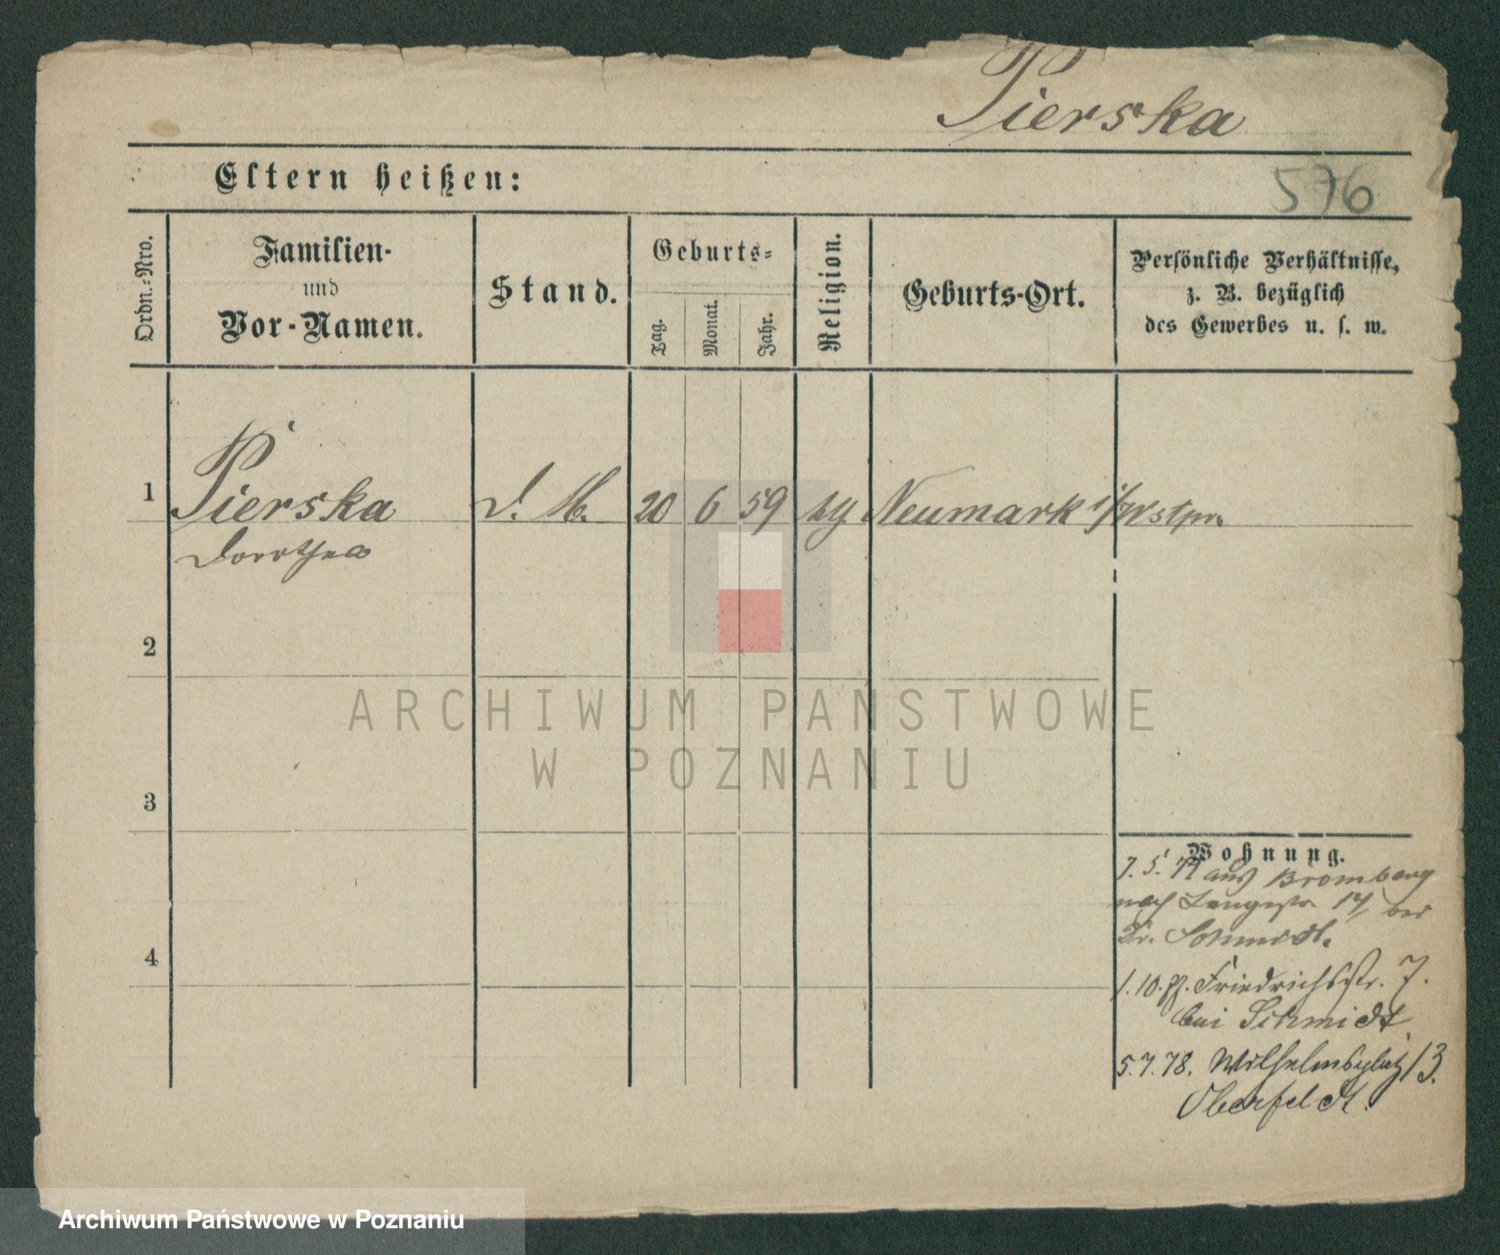 Pierska
Eltern heißen:
576
Ordn.-Nro.
Familien-
und
Vor-Namen.
Stand.
Geburts-
Tag.
Monat.
Jahr.
Religion.
Geburts-Ort.
Persönliche Verhältnisse,
z. B. bezüglich
des Gewerbes u. s. w.
1 Pierska D. M. 20 6 59 Neumark i/Westpr.
Dorothea
2
ARCHIWUM PAŃSTWOWE
W POZNANIU
3
Wohnung.
7. 5. 77 aus Bromberg
nach Langestr 17, bei
Dr. Schmidt.
4
1. 10. 77. Friedrichsstr. 7.
bei Schmidt
5. 7. 78. Wilhelmsplatz 13.
Oberfeldt.
Archiwum Państwowe w Poznaniu